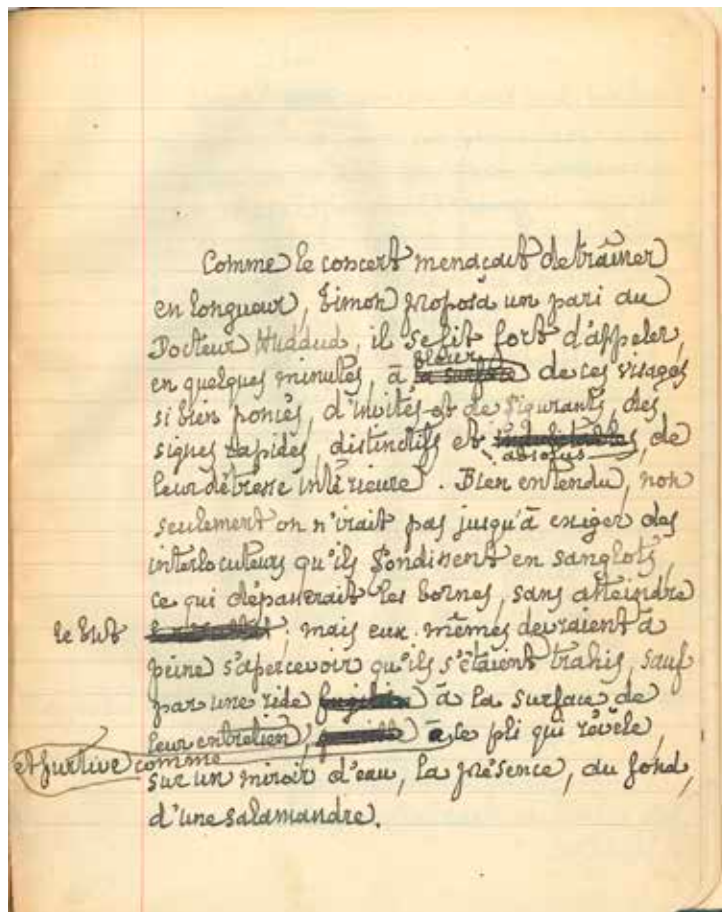 Comme le concert menaçait de traîner
en longueur, Timon proposa un pari au
Docteur Huddud, il se fit fort d'appeler,
en quelques minutes, à fleur
la surface de ces visages
si bien poncés, d'invités et de figurants, des
signes rapides, distinctifs et
absolus
indubitables, de
leur détresse intérieure. Bien entendu, non
seulement on n'irait pas jusqu'à exiger des
interlocuteurs qu'ils fondissent en sanglots,
ce qui dépasserait les bornes, sans atteindre
le but ; mais eux-mêmes devraient à
peine s'apercevoir qu'ils s'étaient trahis, sauf
par une ride fugitive à la surface de
leur entretien, le pli qui révèle,
et furtive comme
sur un miroir d'eau, la présence, au fond,
d'une salamandre.